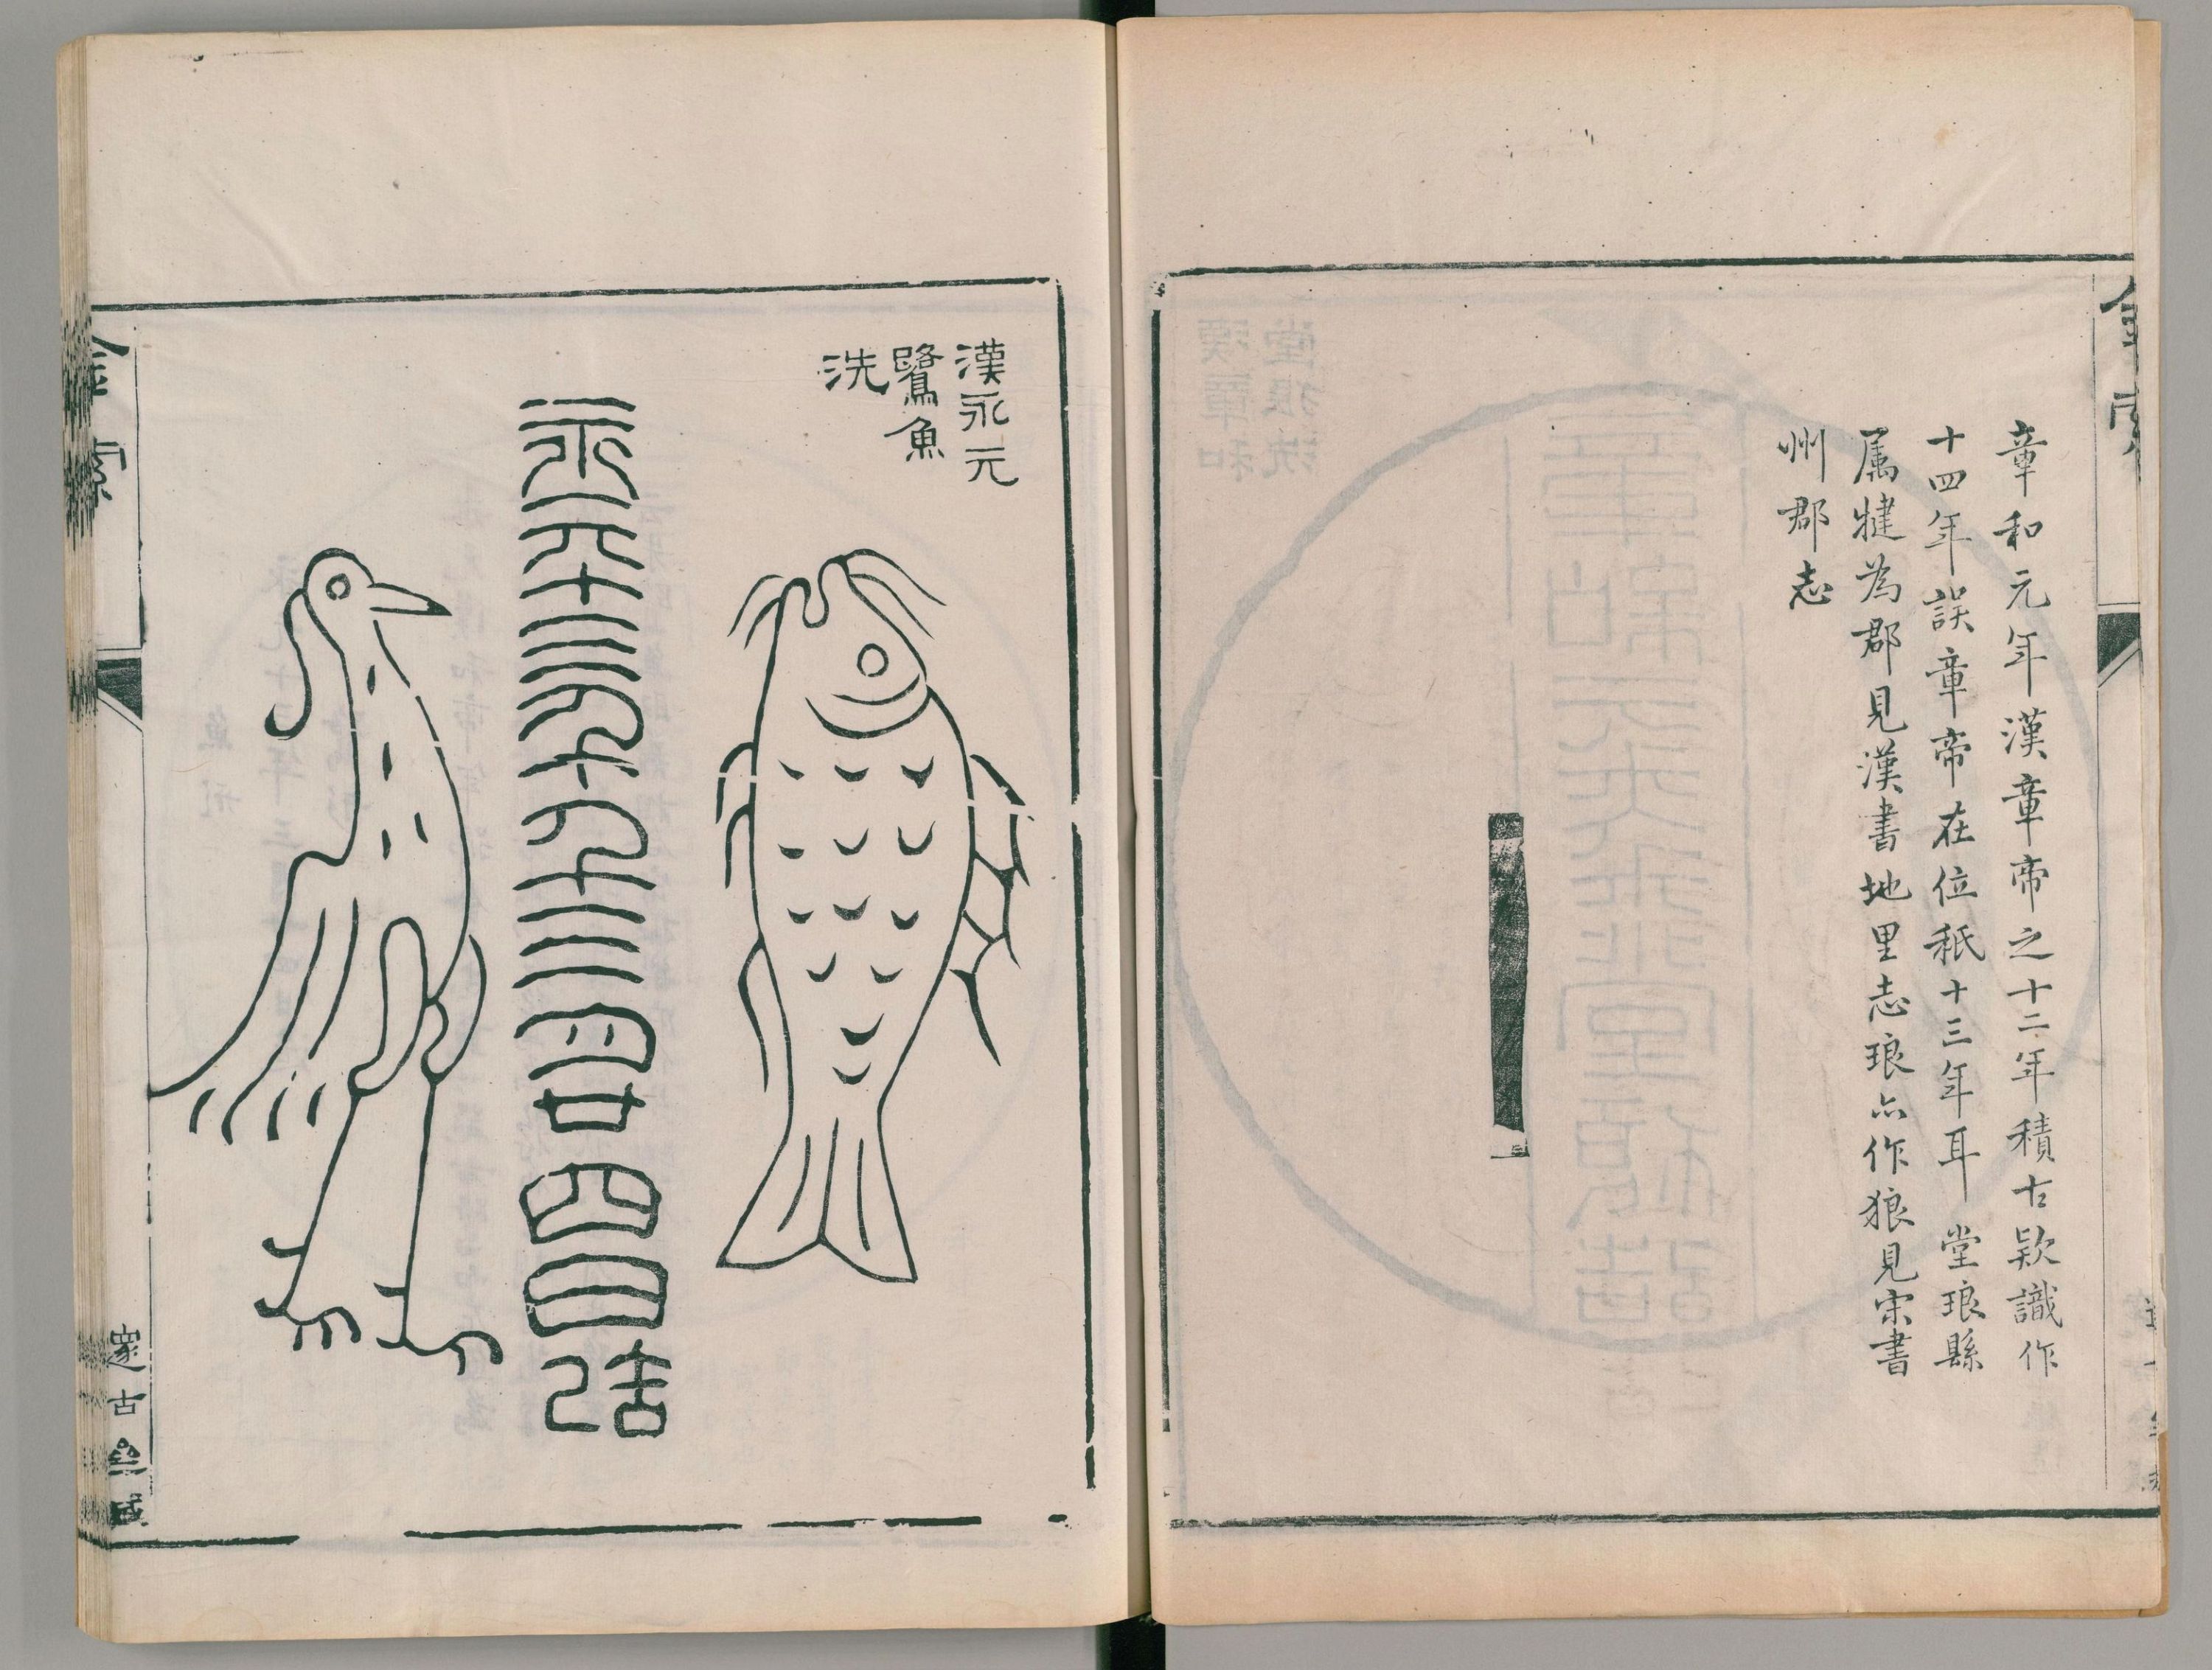 金索
章和元年漢章帝之十二年積古欵識作
十四年誤章帝在位秪十三年耳 堂琅縣
属犍為郡見漢書地里志琅亦作狼見宋書
州郡志
漢永元
鷺魚
洗
永元十三廿四日
金索
邃古亝藏